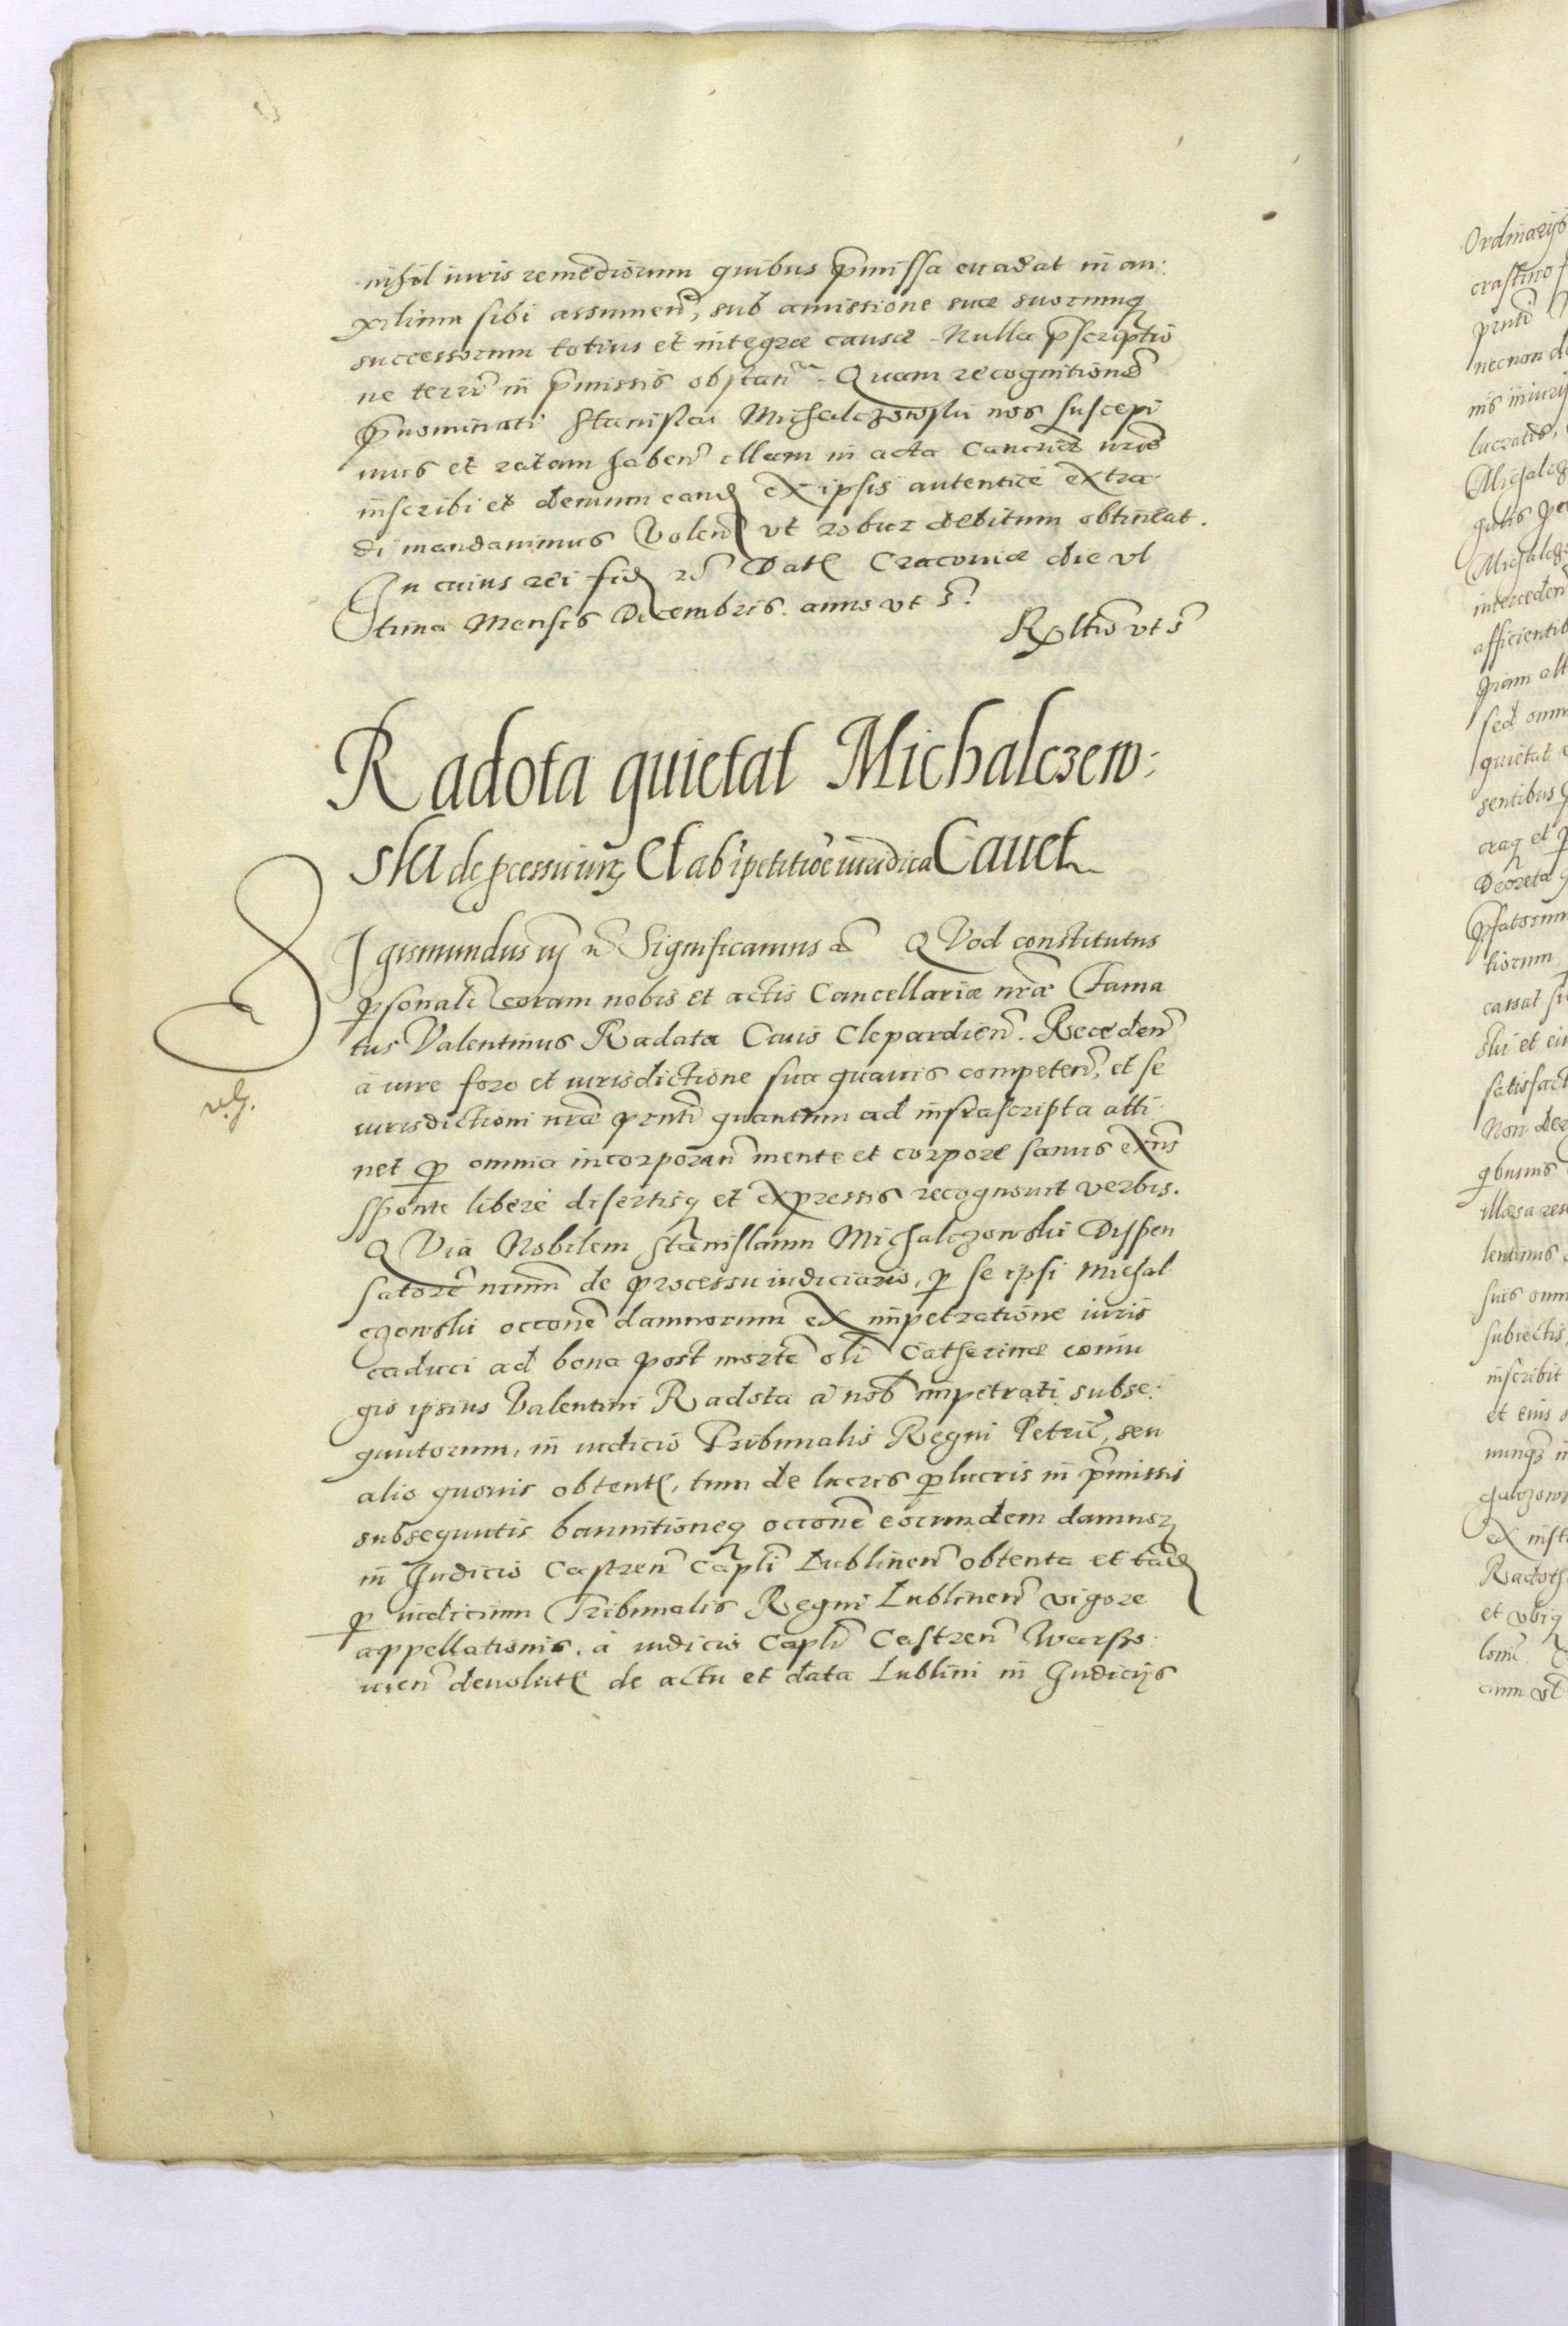 nihil iuris remediorum quibus p̄missa euadat in au:
xilium sibi assumen̄, sub amissione suae suorumq
successorum totius et integrae causae. Nulla p̄scriptio
ne terr̄ in p̄missis obstan̄. Quam recognitionē
p̄nominati Stanislai Michalczowski nos suscepi
mus et ratam haben̄ illam in acta Cancriae nrae
inscribi et demum eand ex ipsis autentice extra
di mandauimus Volen̄ vt robur debitum obtineat.
In cuius rei fid rē Dat Cracouiae die vl
tima Mensis Decembris. anno vt s̄.
Rltio vt s̄
Radota quietat Michalczew:
ski de pcessu iur Et ab ipetitiōe iuridica Cauet
SIgismundus iij rē Significamus ā QVod constitutus
psonalr̄ coram nobis et actis Cancellariae nrāe Fama
tus Valentinus Radata Ciuis Clepardien̄. Receden̄
à iure foro et iurisdictione sua quauis competen̄, et se
iurisdictioni nrāe pnti quantum ad infrascripta atti
net p omnia incorporan̄ mente et corpore sanus exn̄s
sponte libere disertisq et expressis recognouit verbis.
QVia Nobilem Stanislaum Michalczowski Dispen
satorē nrum de processu iudiciario, p se ipsi Michal
czowski occone damnorum ex impetratione iuris
caduci ad bona post mortē oli Catherinae coniu
gis ipsius Valentini Radota à nob impetrati subse:
quutorum, in iudicio Tribunalis Regni Petric̄, seu
alio quouis obtent, tum de lucris plucris in p̄missis
subsequutis bannitioneq occone eorumdem damnor
in Iudicio Castren̄ Capli Lublinen̄ obtenta et tand
p iudicium Tribunalis Regni Lublinen̄ vigore
appellationis. à iudicio Capli Castren̄ Warsso:
uien̄ deuolut de actu et data Lublini in Iudicijs
Ordinarijs
crastino
pnti
necnon de
nis iniurij
lucratis,
Michalcz
gulis pe
Michalcz
interceden
afficientib
quam alt
sed omn
quietat e
sentibus
oraq et p
Decreta
pfatorum
tiorum,
cassat
ski et ei
satisfact
Non der
quibusuis
illaesa res
lentinus
suis omn
subiectis
inscribit
et eius
nunq in
chalczow
ex inst
Radoth
et vbiq
anm vt